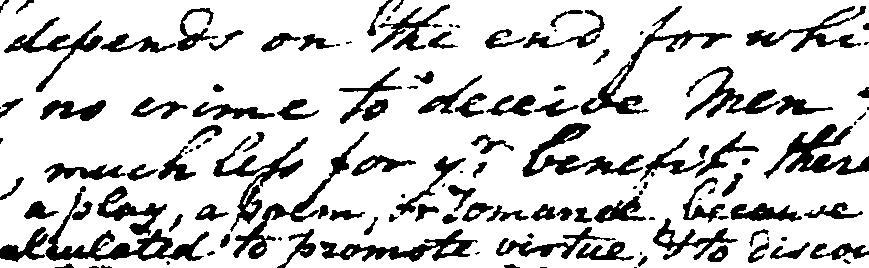 depends on the end, for whi
no crime to deceive Men
, much less for yr. benefit; there
a play, a poem, or Romance, because
alculated to promote virtue, & to discou